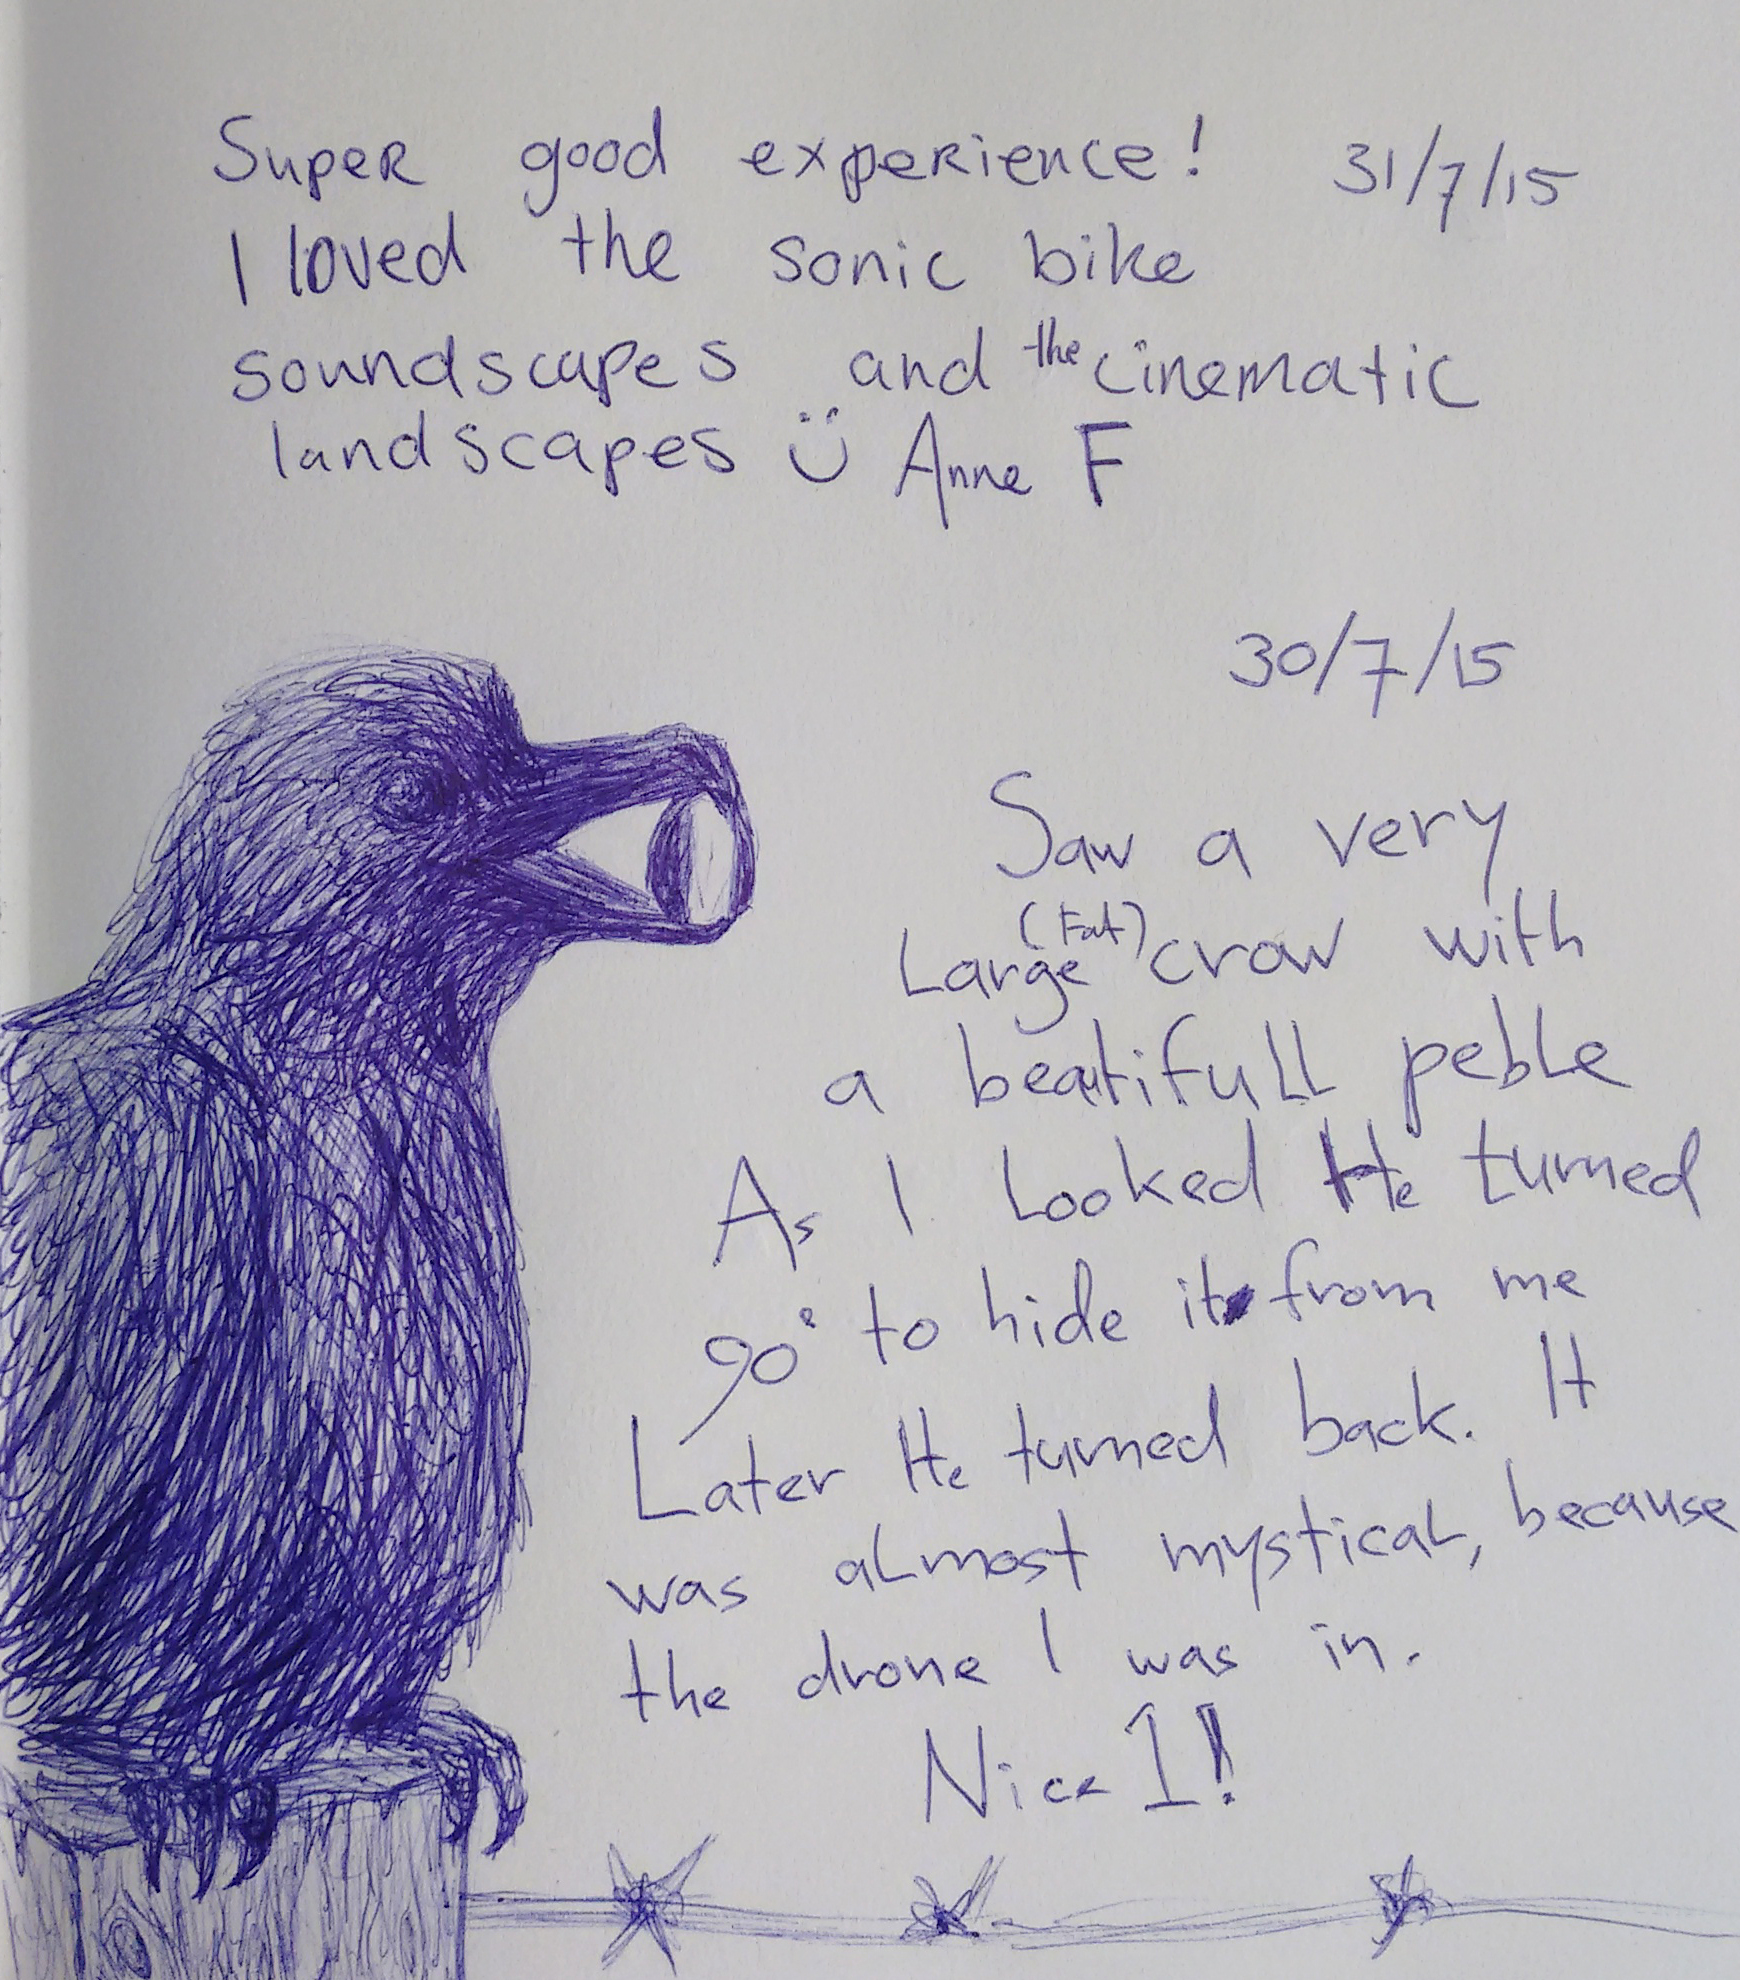 Super good experience! 31/7/15
I loved the sonic bike
soundscapes and the cinematic
landscapes Anne F
30/7/15
Saw a very
Large (Fat) crow with
a beatifull peble
As I Looked He turned
90° to hide it from me
Later He turned back. It
was almost mystical, because
the drone I was in.
Nice 1!